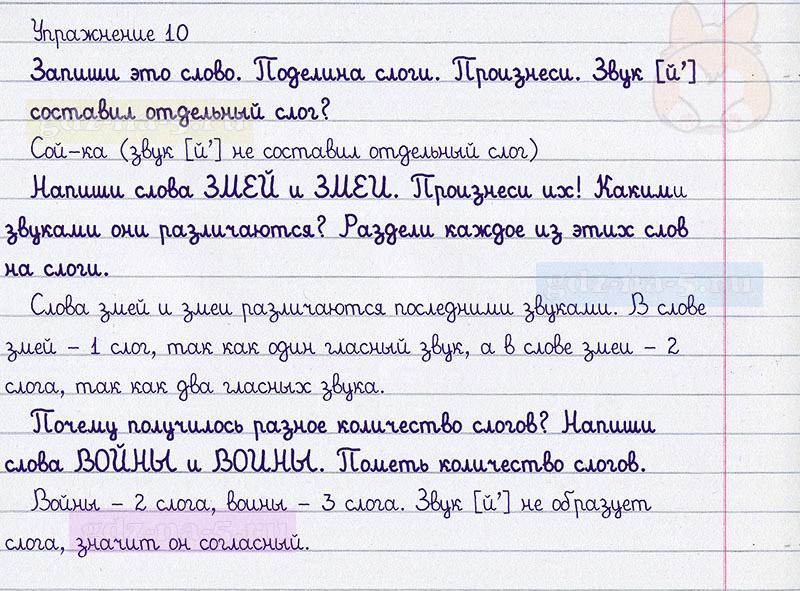 Упражнение 10
Запиши это слово. Поделина слоги. Произнеси. Звук [й’]
составил отдельный слог?
Сой-ка (звук [й’] не составил отдельный слог)
Напиши слова ЗМЕЙ и ЗМЕИ. Произнеси их! Какими
звуками они различаются? Раздели каждое из этих слов
на слоги.
Слова змей и змеи различаются последними звуками. В слове
змей – 1 слог, так как один гласный звук, а в слове змеи – 2
слога, так как два гласных звука.
Почему получилось разное количество слогов? Напиши
слова ВОЙНЫ и ВОИНЫ. Пометь количество слогов.
Войны – 2 слога, воины – 3 слога. Звук [й’] не образует
слога, значит он согласный.
gdz-na-5.ru
gdz-na-5.ru
gdz-na-5.ru